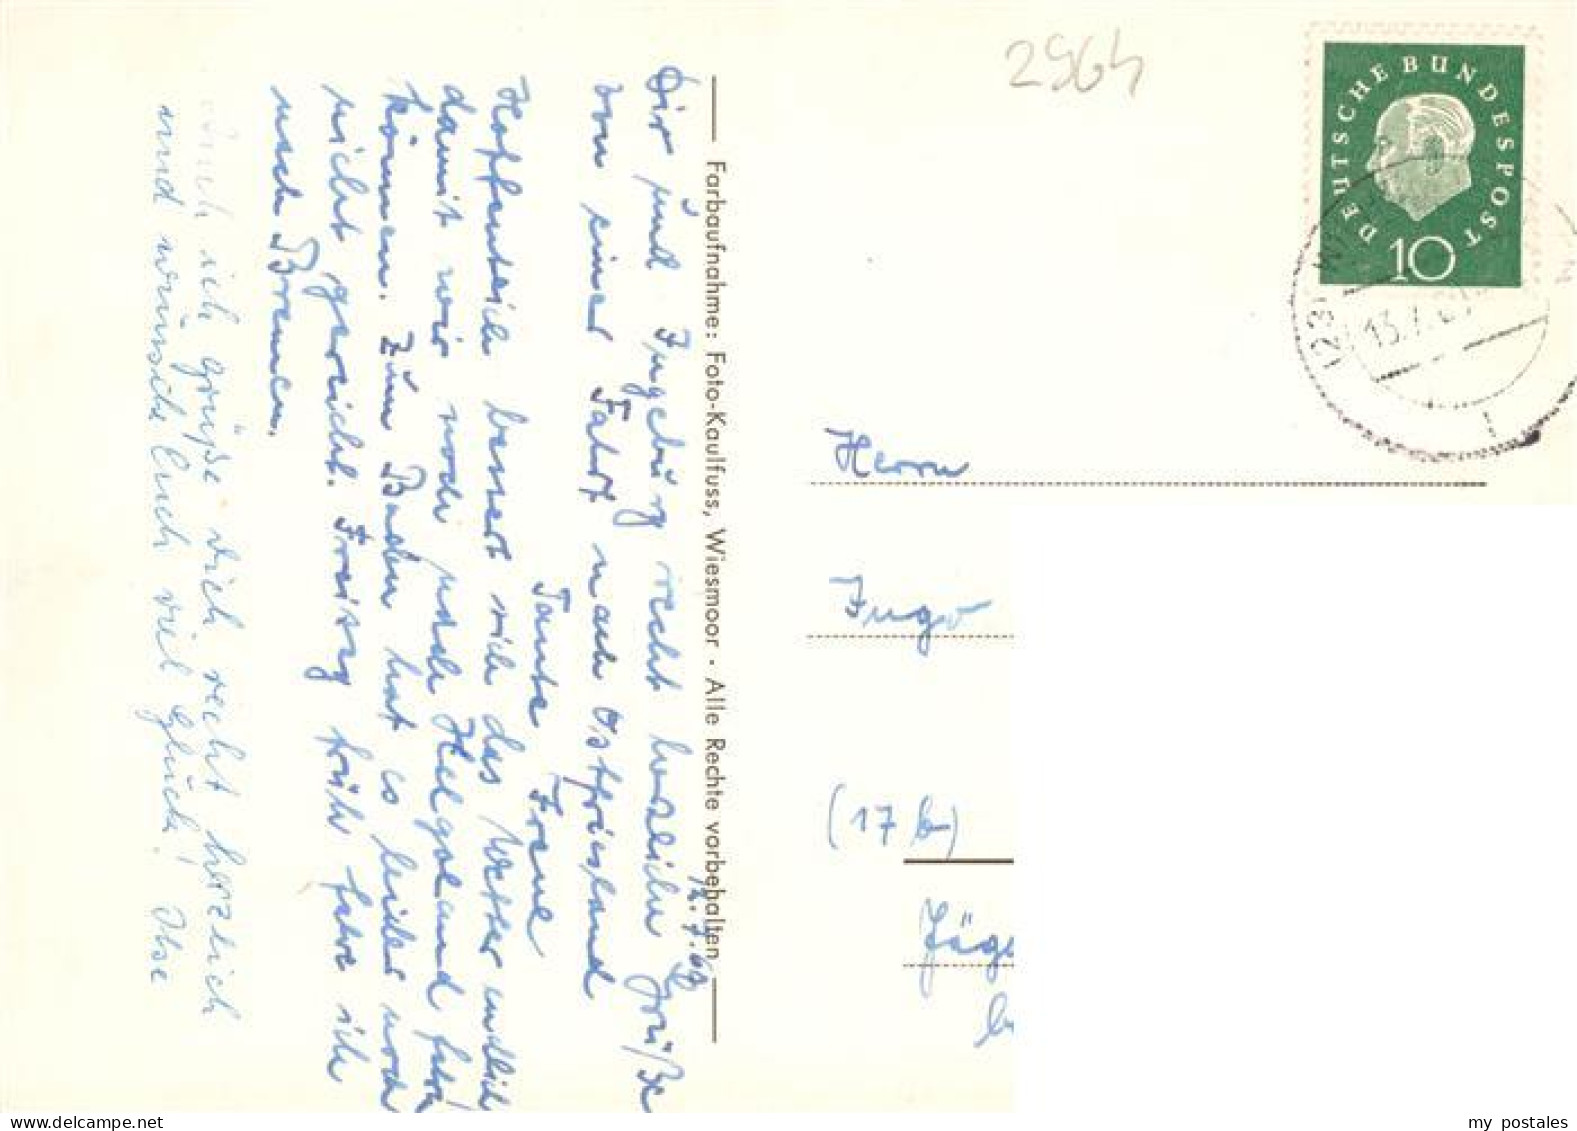 12.7.60
Dir und Ingeburg recht herzliche Grüße
von einer Fahrt nach Ostfriesland
Tante Irene
Hoffentlich bessert sich das Wetter endlich
damit wir noch nach Helgoland fahren
können. Zum Baden hat es leider noch
nicht gereicht. Freitag früh fahre ich
nach Bremen.
Auch ich grüße Dich recht herzlich
und wünsche Euch viel Glück! Ilse
Farbaufnahme: Foto-Kaulfuss, Wiesmoor · Alle Rechte vorbehalten
2964
DEUTSCHE BUNDESPOST
10
(23)
13.7.
Herrn
Ingo
(17 b)
Jäge
my postales